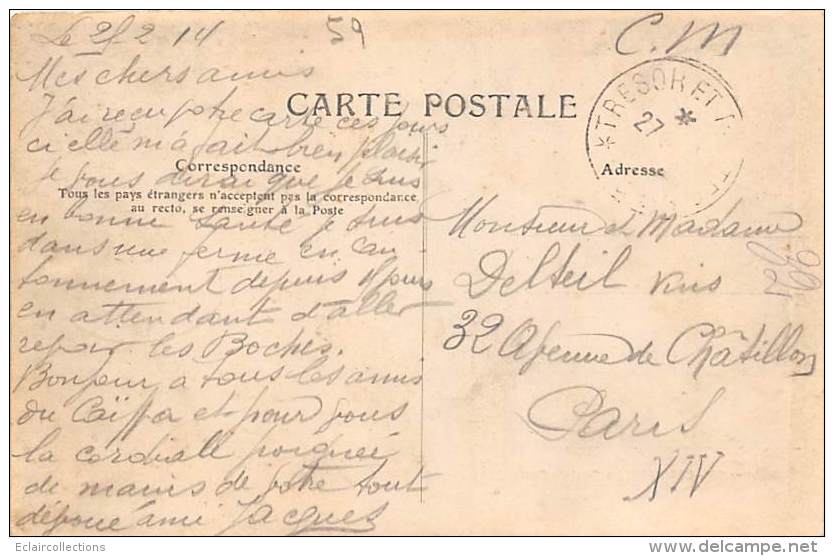 59
C.M
Mes chers amis
J'ai reçu votre carte ces jours
ci elle m'a fait bien plaisir
Je vous dirai que je suis
en bonne santé je suis
dans une ferme en can
tonnement depuis jours
en attendant d'aller
revoir les Boches.
Bonjour a tous les amis
du Caïffa et pour vous
la cordiale poignée
de mains de votre tout
dévoué ami Jacques
CARTE POSTALE
Correspondance
Tous les pays étrangers n'acceptent pas la correspondance
au recto, se renseigner à la Poste
*TRESOR ET
27 *
Adresse
Monsieur et Madame
Delteil vins
32 Avenue de Châtillon
Paris
XIV
Eclaircollections
www.delcampe.net